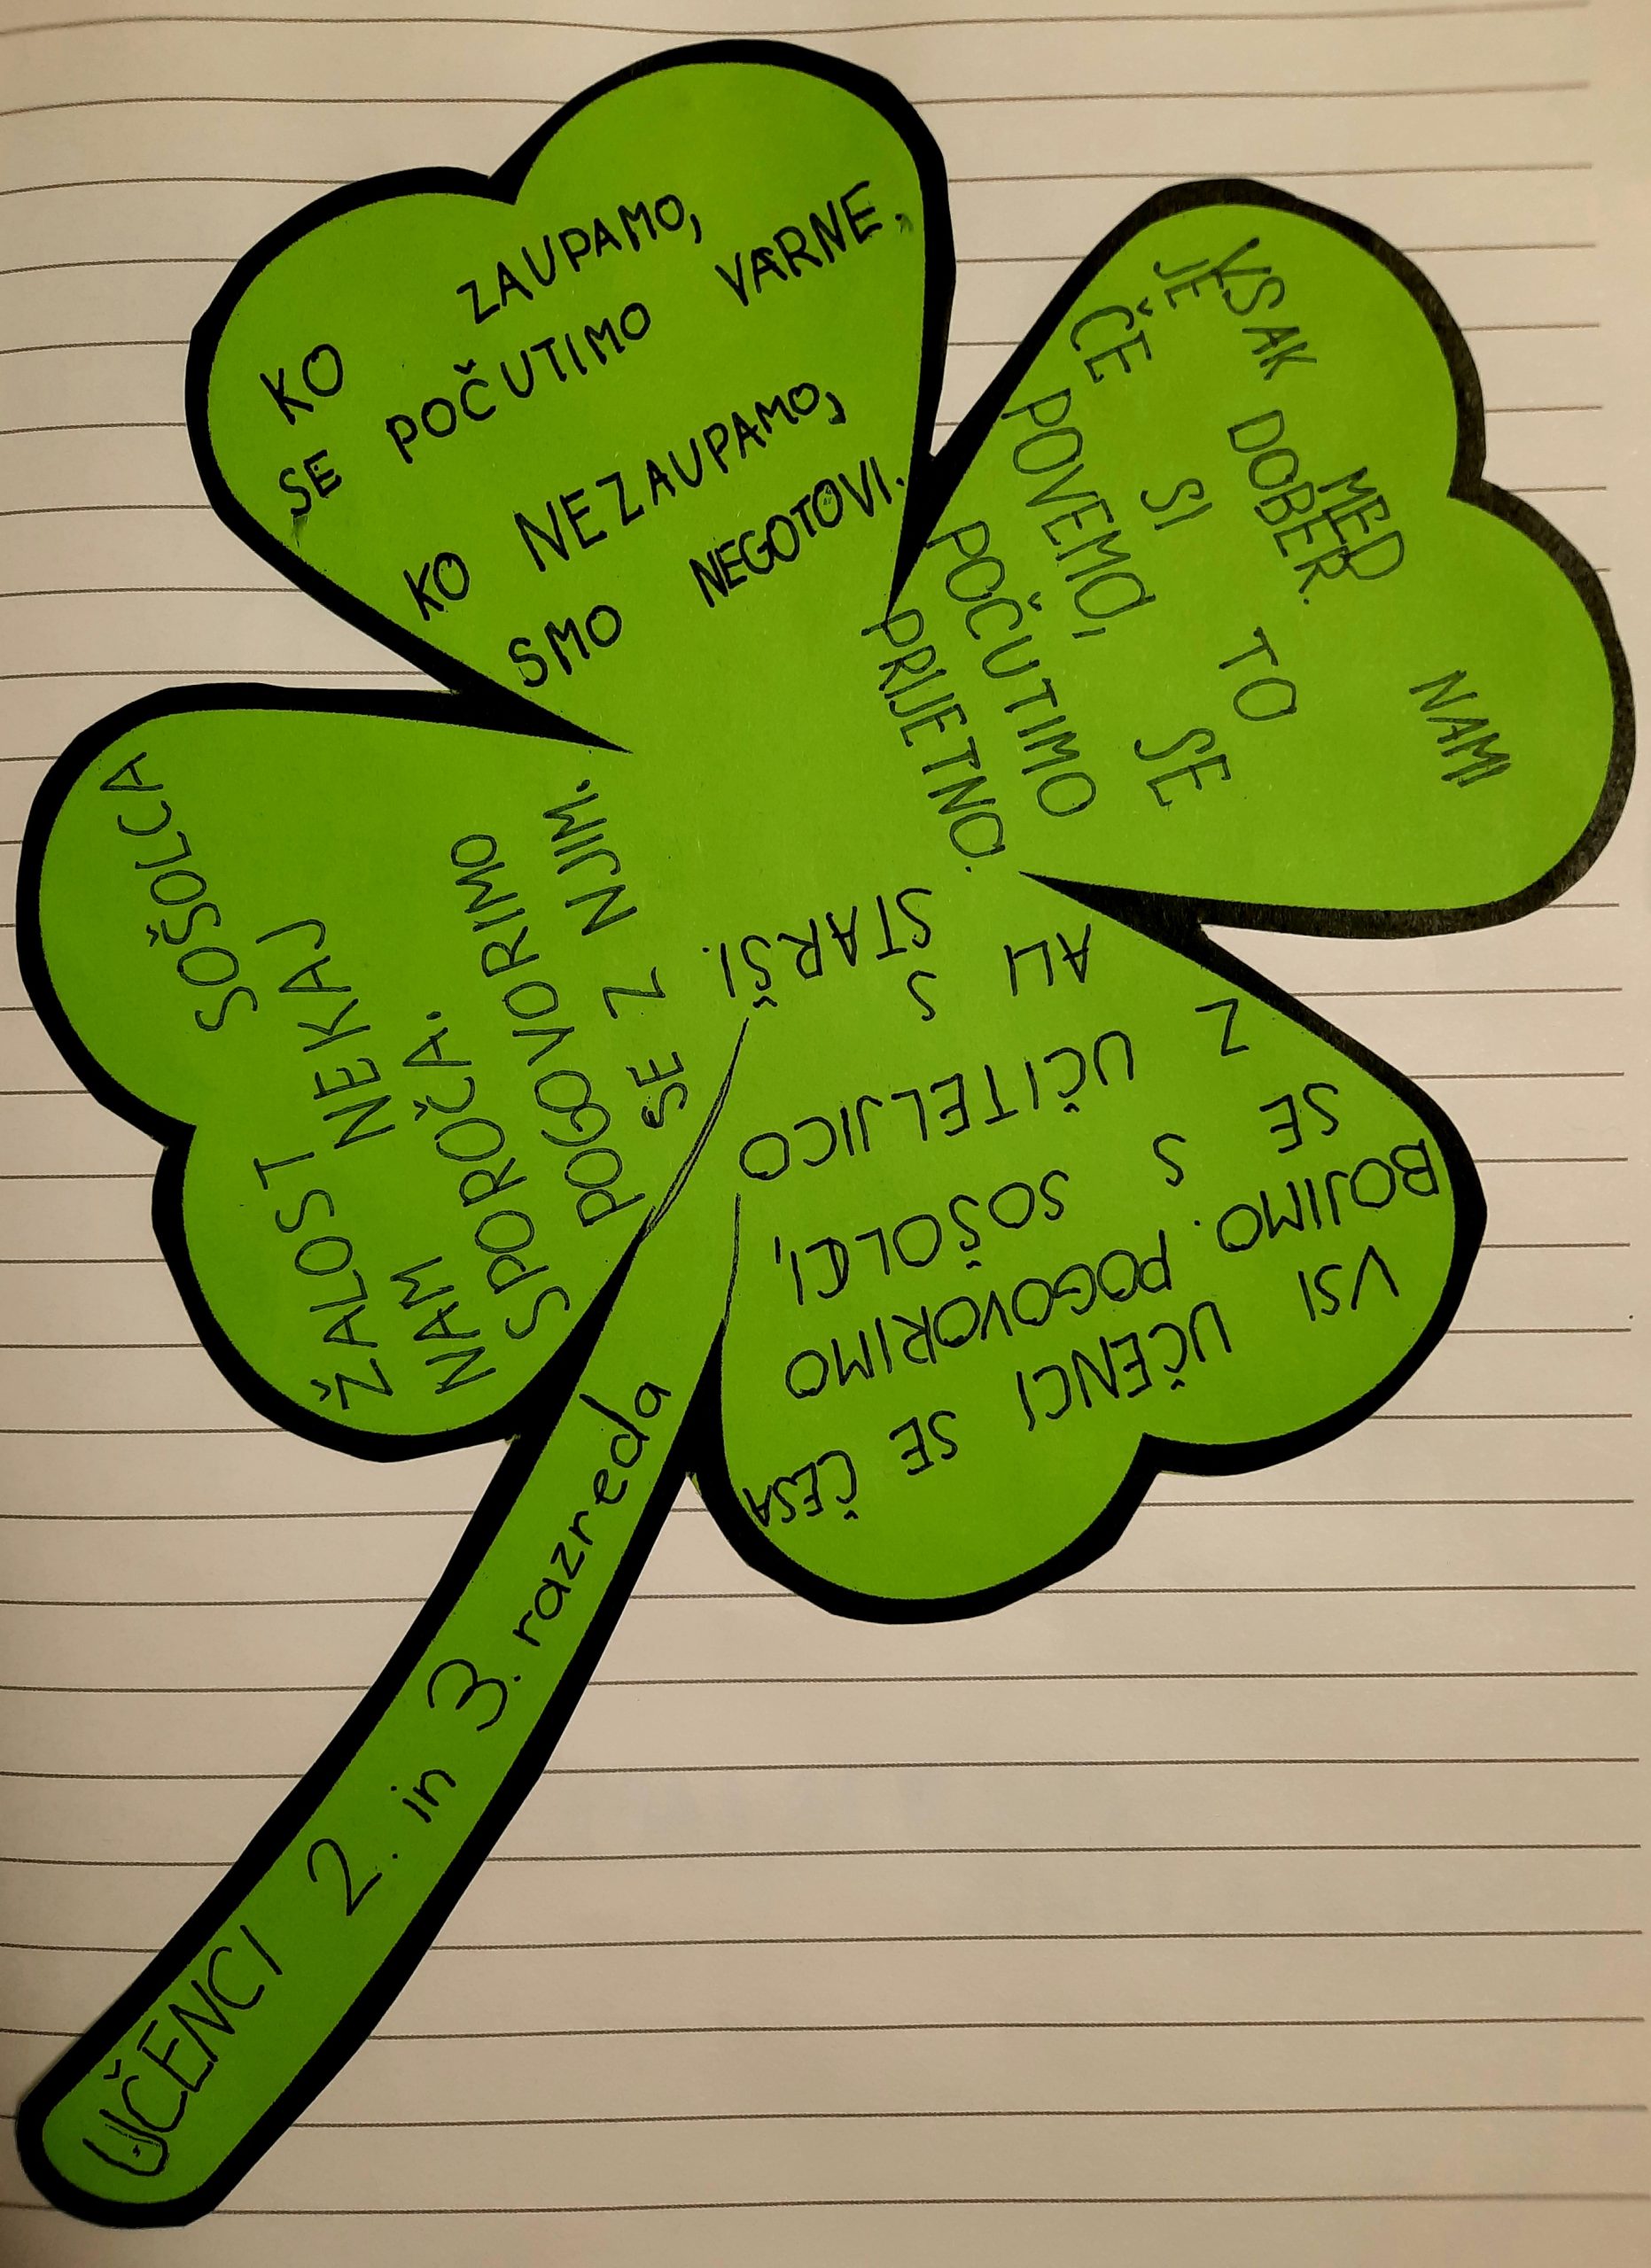 KO ZAUPAMO,
SE POČUTIMO VARNE.
KO NEZAUPAMO,
SMO NEGOTOVI.
VSAK MED NAMI
JE DOBER.
ČE SI TO
POVEMO, SE
POČUTIMO
PRIJETNO.
VSI UČENCI SE ČESA
BOJIMO. POGOVORIMO
SE S SOŠOLCI,
Z UČITELJICO
ALI S STARŠI.
ŽALOST SOŠOLCA
NAM NEKAJ
SPOROČA.
POGOVORIMO
SE Z NJIM.
UČENCI 2. in 3. razreda